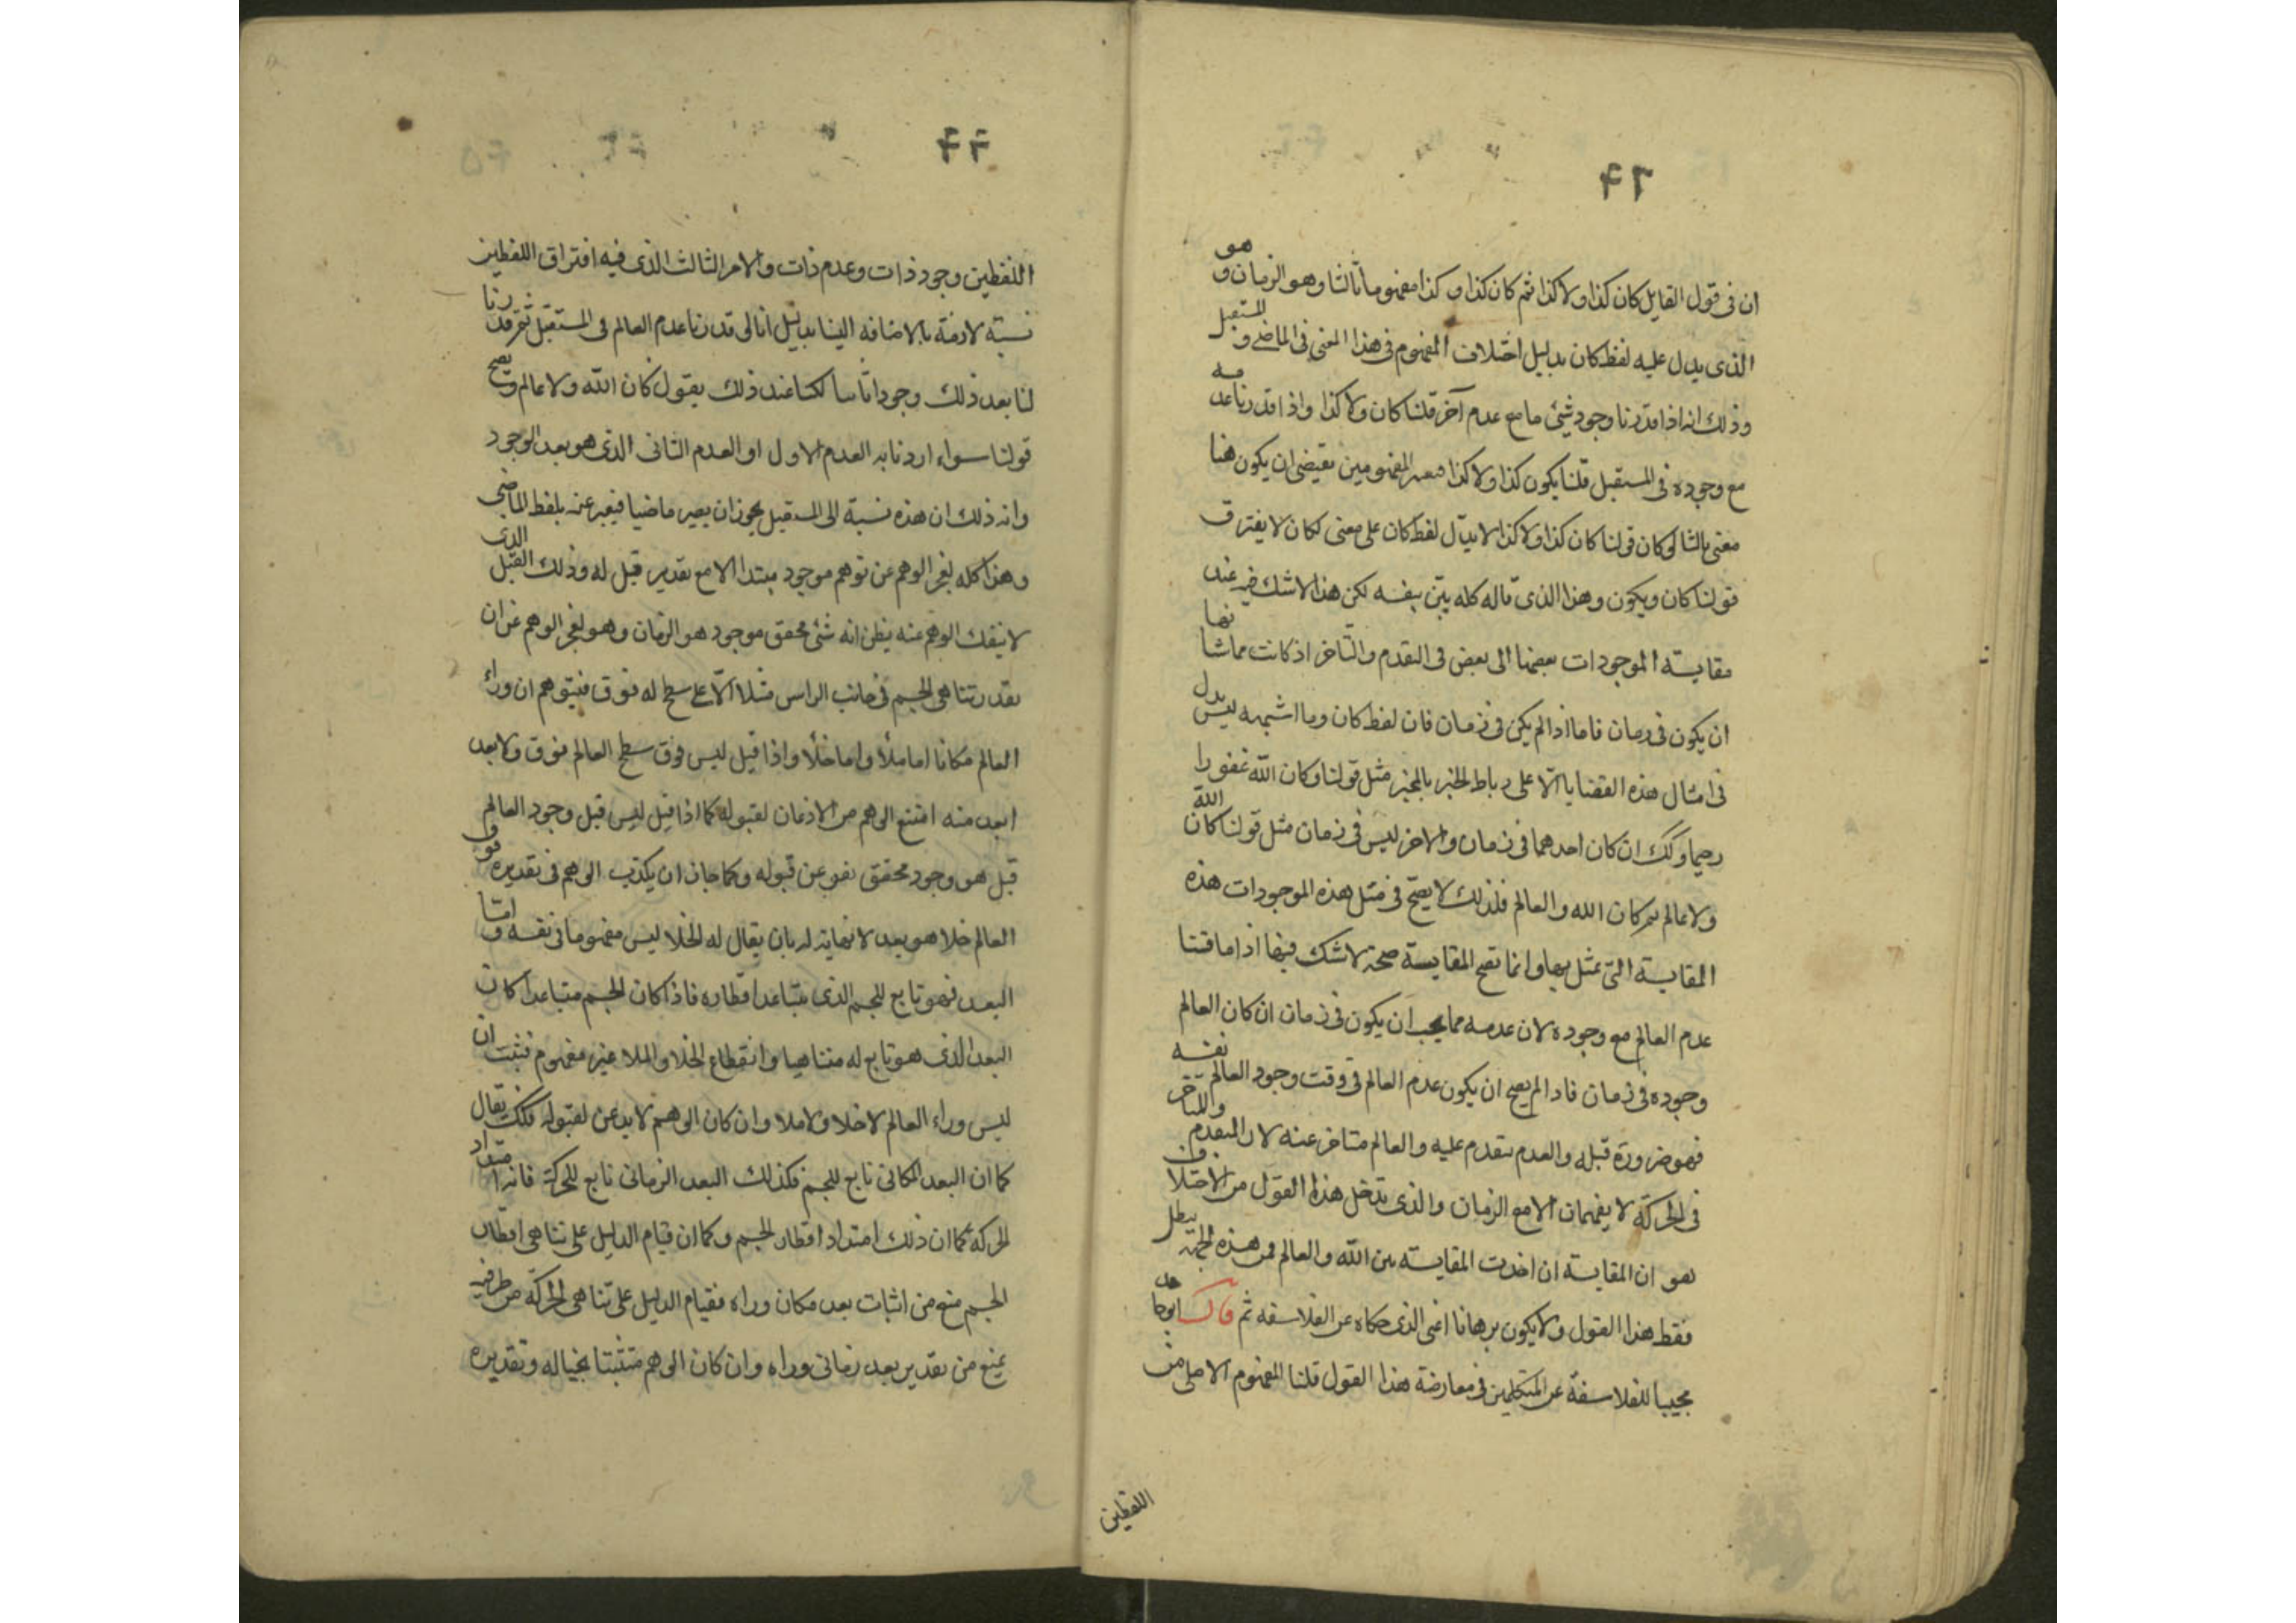 ٤٦
ان فى قول القايل كان كذا ولا كذا ثم كان كذا و كذا مفهوما ثالثا وهو الزمان و هو
الذى يدل عليه لفظ كان بدليل اختلاف المفهوم فى هذا المعنى فى الماضى و المستقبل
وذلك انه اذا قدرنا وجود شئ ما مع عدم آخر قلنا كان ولا كذا واذا قدرنا عدمه
مع وجوده فى المستقبل قلنا يكون كذا ولا كذا المفهومين يقتضى ان يكون هنا
معنى ثالثا لو كان قولنا كان كذا ولا كذا لا يدل لفظ كان على معنى لكان لا يفترق
قولنا كان ويكون وهذا الذى قاله كله بيّن بنفسه لكن هذا لا شك فيه عند
مقايسة الموجودات بعضها الى بعض فى التقدم والتاخر اذ كانت مما شانها
ان يكون فى زمان فاما اذا لم يكن فى زمان فان لفظ كان وما اشبهه ليس يدل
فى امثال هذه القضايا الّا على رباط الخبر بالمخبر مثل قولنا وكان الله غفورا
رحيما وكك ان كان احدهما فى زمان والاخر ليس فى زمان مثل قولنا كان الله
ولا عالم ثم كان الله والعالم فلذلك لا يصّح فى مثل هذه الموجودات هذه
المقايسة التى تمثل بها وانما تصح المقايسة صحة لا شك فيها اذا ما قسنا
عدم العالم مع وجوده لان عدمه مما يجب ان يكون فى زمان ان كان العالم
وجوده فى زمان فاذا لم يصح ان يكون عدم العالم فى وقت وجود العالم نفسه
فهو ضرورة قبله والعدم يتقدم عليه والعالم متاخر عنه لان المتقدم والمتاخر
فى الحركة لا يفهمان الا مع الزمان والذى يدخل هذا القول من الاختلا
هو ان المقايسة ان اخذت المقايسة بين الله والعالم فمن هذه الجهة يبطل
فقط هذا القول ولا يكون برهانا اعنى الذى حكاه عن الفلاسفه ثم قال ابوحامد
مجيبا للفلاسفة عن المتكلمين فى معارضة هذا القول قلنا المفهوم الاصلى من
اللفظين
اللفظين وجود ذات وعدم ذات والامر الثالث الذى فيه افتراق اللفظين
نسبة لازمة بالاضافه الينا بدليل انا لو قدرنا عدم العالم فى المستقبل ثم قدرنا
لنا بعد ذلك وجودا ثانيا لكنا عند ذلك بقول كان الله ولا عالم و يصح
قولنا سواء اردنا به العدم الاول او العدم الثانى الذى هو بعد الوجود
وانه ذلك ان هذه نسبة الى المستقبل يجوز ان يصير ماضيا فيعبر عنه بلفظ الماضى
وهذا كله لعجز الوهم عن توهم موجود مبتدا الا مع تقدير قبل له وذلك القبل الذى
لا ينفك الوهم عنه يظن انه شئ محقق موجود هو الزمان وهو لعجز الوهم عن ان
يقدر تناهى الجسم فى جانب الراس مثلا الّا على سطح له فوق فيتوهم ان وراء
العالم مكانا اما ملأ واما خلأ واذا قيل ليس فوق سطح العالم فوق ولا بعد
ابعد منه امتنع الوهم من الاذعان لقبوله كما اذا قيل ليس قبل وجود العالم
قبل هو وجود محقق نفر عن قبوله وكما جاز ان يكذب الوهم فى تقديره فوق
العالم خلا هو بعد لا نهاية له بان يقال له الخلا ليس مفهوما فى نفسه و اما
البعد فهو تابع للجسم الذى يتباعد اقطاره فاذا كان الجسم متباعدا كان
البعد الذى هو تابع له متناهيا وانقطاع الخلا والملا غير مفهوم فثبت ان
ليس وراء العالم لا خلا ولا ملا وان كان الوهم لا يدعن لقبوله فكك يقال
كما ان البعد المكانى تابع للجسم فكذلك البعد الزمانى تابع للحركة فانه امتداد
الحركة كما ان ذلك امتداد اقطار الجسم وكما ان قيام الدليل على تناهى اقطار
الجسم منع من اثبات بعد مكان وراه فقيام الدليل على تناهى الحركة من طرفيه
يمنع من تقدير بعد زمانى وراه وان كان الوهم متشبثا بخياله وتقديره